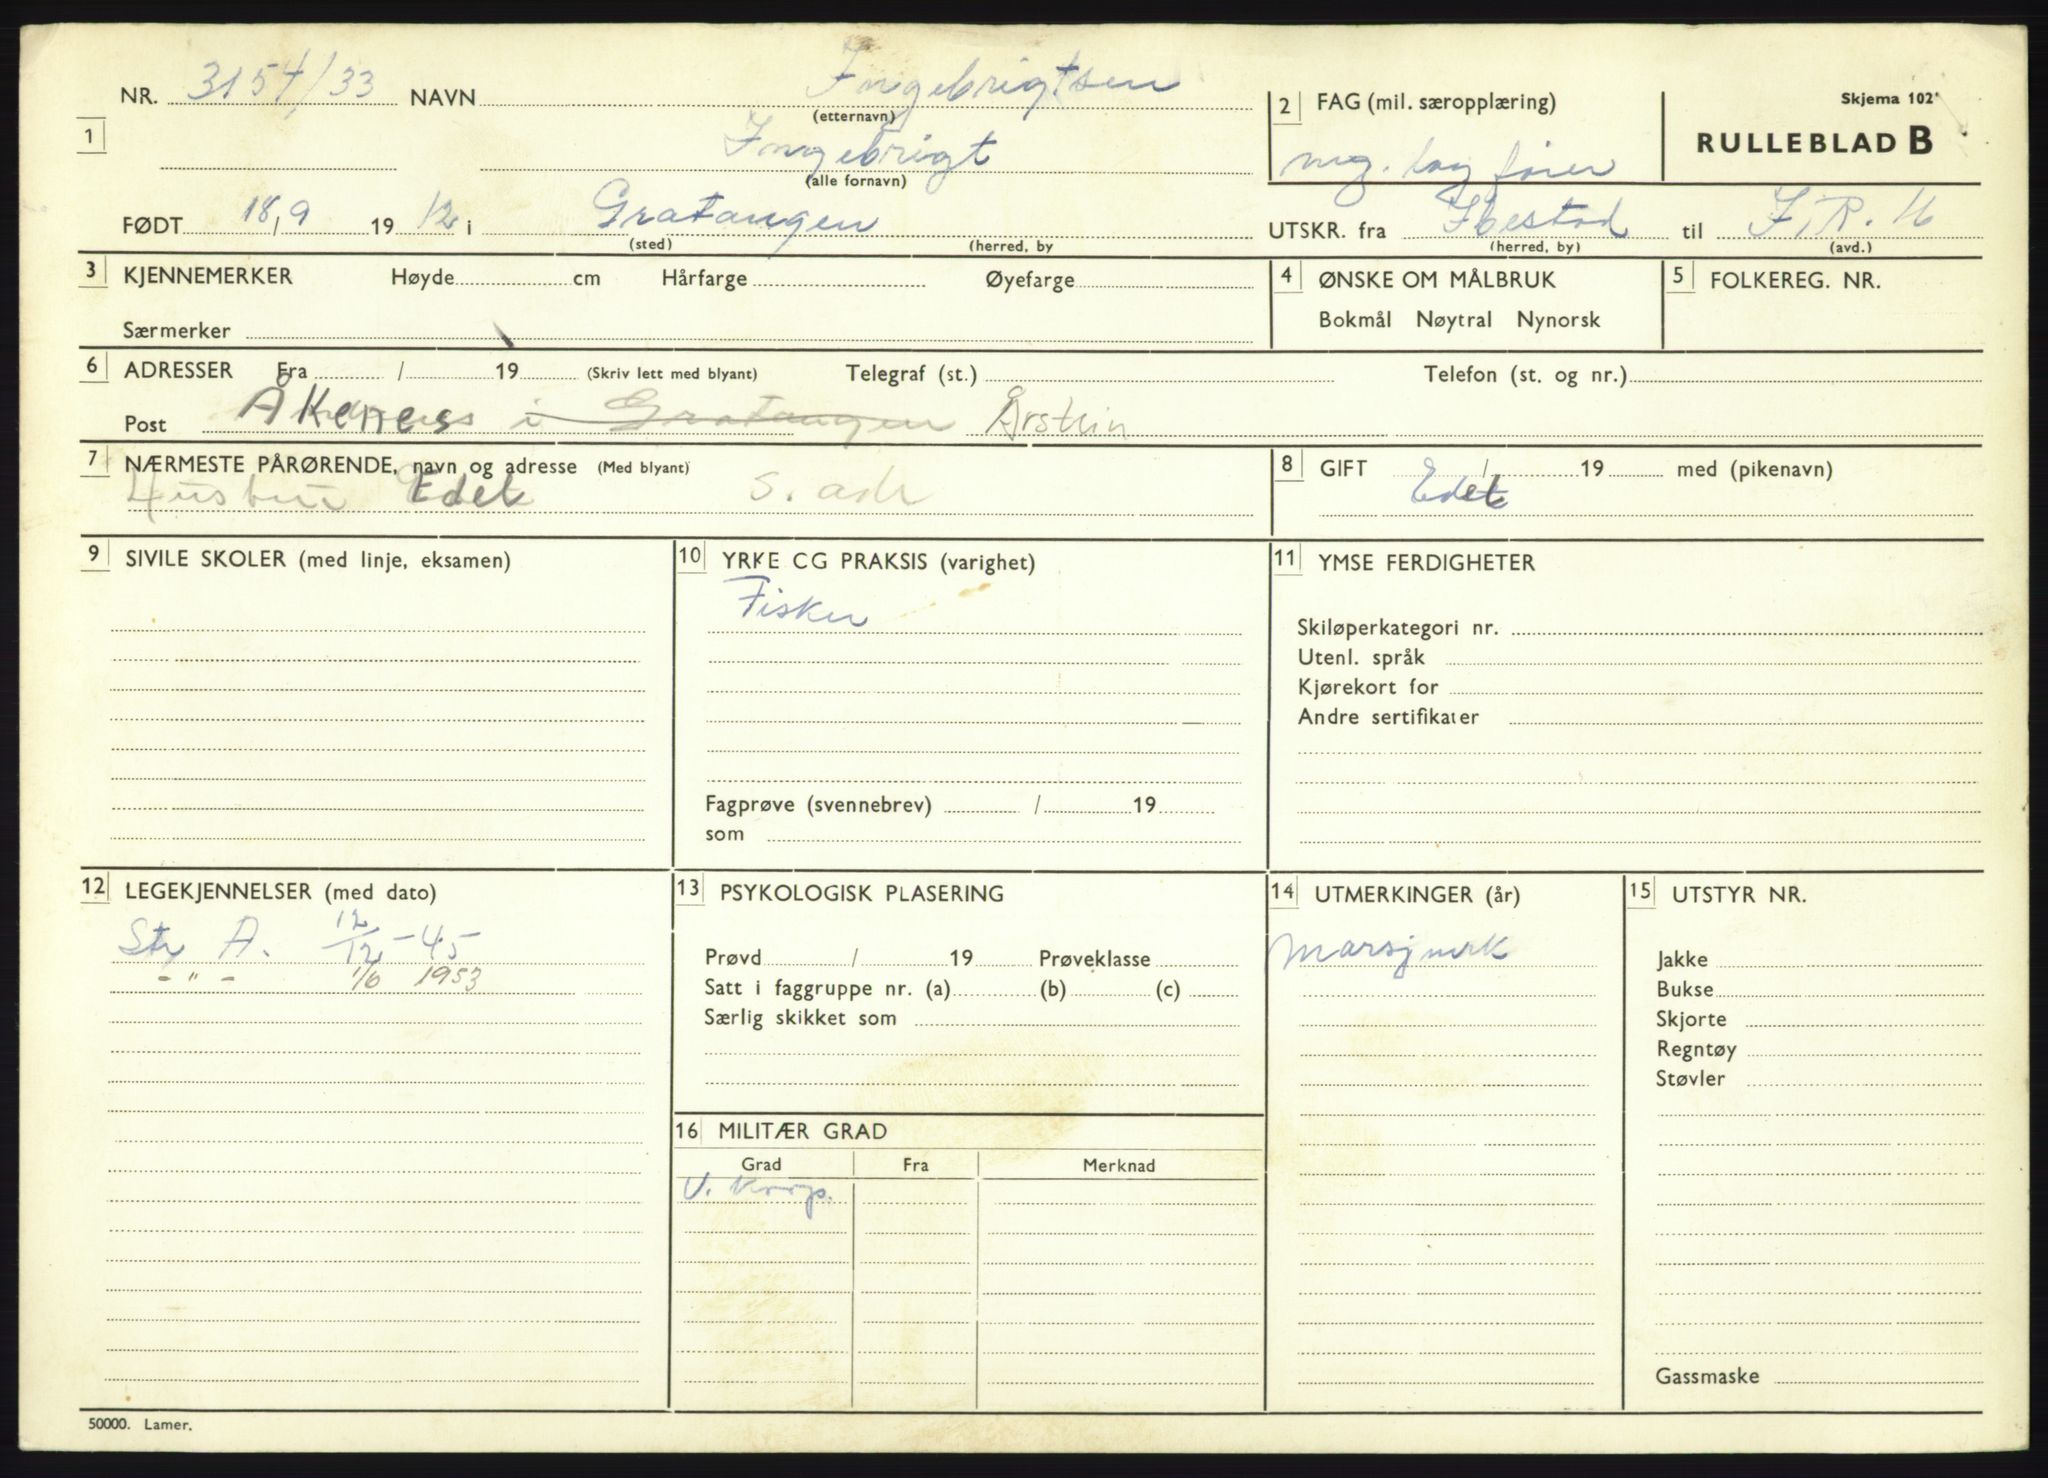 Skjema 102
RULLEBLAD B
NR. 3154/33 NAVN Ingebrigtsen
(etternavn)
1 Ingebrigt
(alle fornavn)
FØDT 18/9 1912 i Gratangen
(sted) (herred, by
2 FAG (mil. særopplæring)
mg. lag fører
UTSKR. fra Ibestad til I.R. 16
(herred, by) (avd.)
3 KJENNEMERKER Høyde cm Hårfarge Øyefarge
Særmerker
4 ØNSKE OM MÅLBRUK
Bokmål Nøytral Nynorsk
5 FOLKEREG. NR.
6 ADRESSER Fra / 19 (Skriv lett med blyant) Telegraf (st.) Telefon (st. og nr.)
Post Åkenes i Gratangen Årstein
7 NÆRMESTE PÅRØRENDE, navn og adresse (Med blyant)
Hustru Edel s. adr
8 GIFT / 19 med (pikenavn)
Edel
9 SIVILE SKOLER (med linje, eksamen)
10 YRKE CG PRAKSIS (varighet)
Fisker
Fagprøve (svennebrev) / 19
som
11 YMSE FERDIGHETER
Skiløperkategori nr.
Utenl. språk
Kjørekort for
Andre sertifikater
12 LEGEKJENNELSER (med dato)
Str A. 12/12-45
- " - 1/6 1953
13 PSYKOLOGISK PLASERING
Prøvd / 19 Prøveklasse
Satt i faggruppe nr. (a) (b) (c)
Særlig skikket som
14 UTMERKINGER (år)
Marsjmrk
15 UTSTYR NR.
Jakke
Bukse
Skjorte
Regntøy
Støvler
Gassmaske
16 MILITÆR GRAD
Grad Fra Merknad
V. Korp.
50000. Lamer.